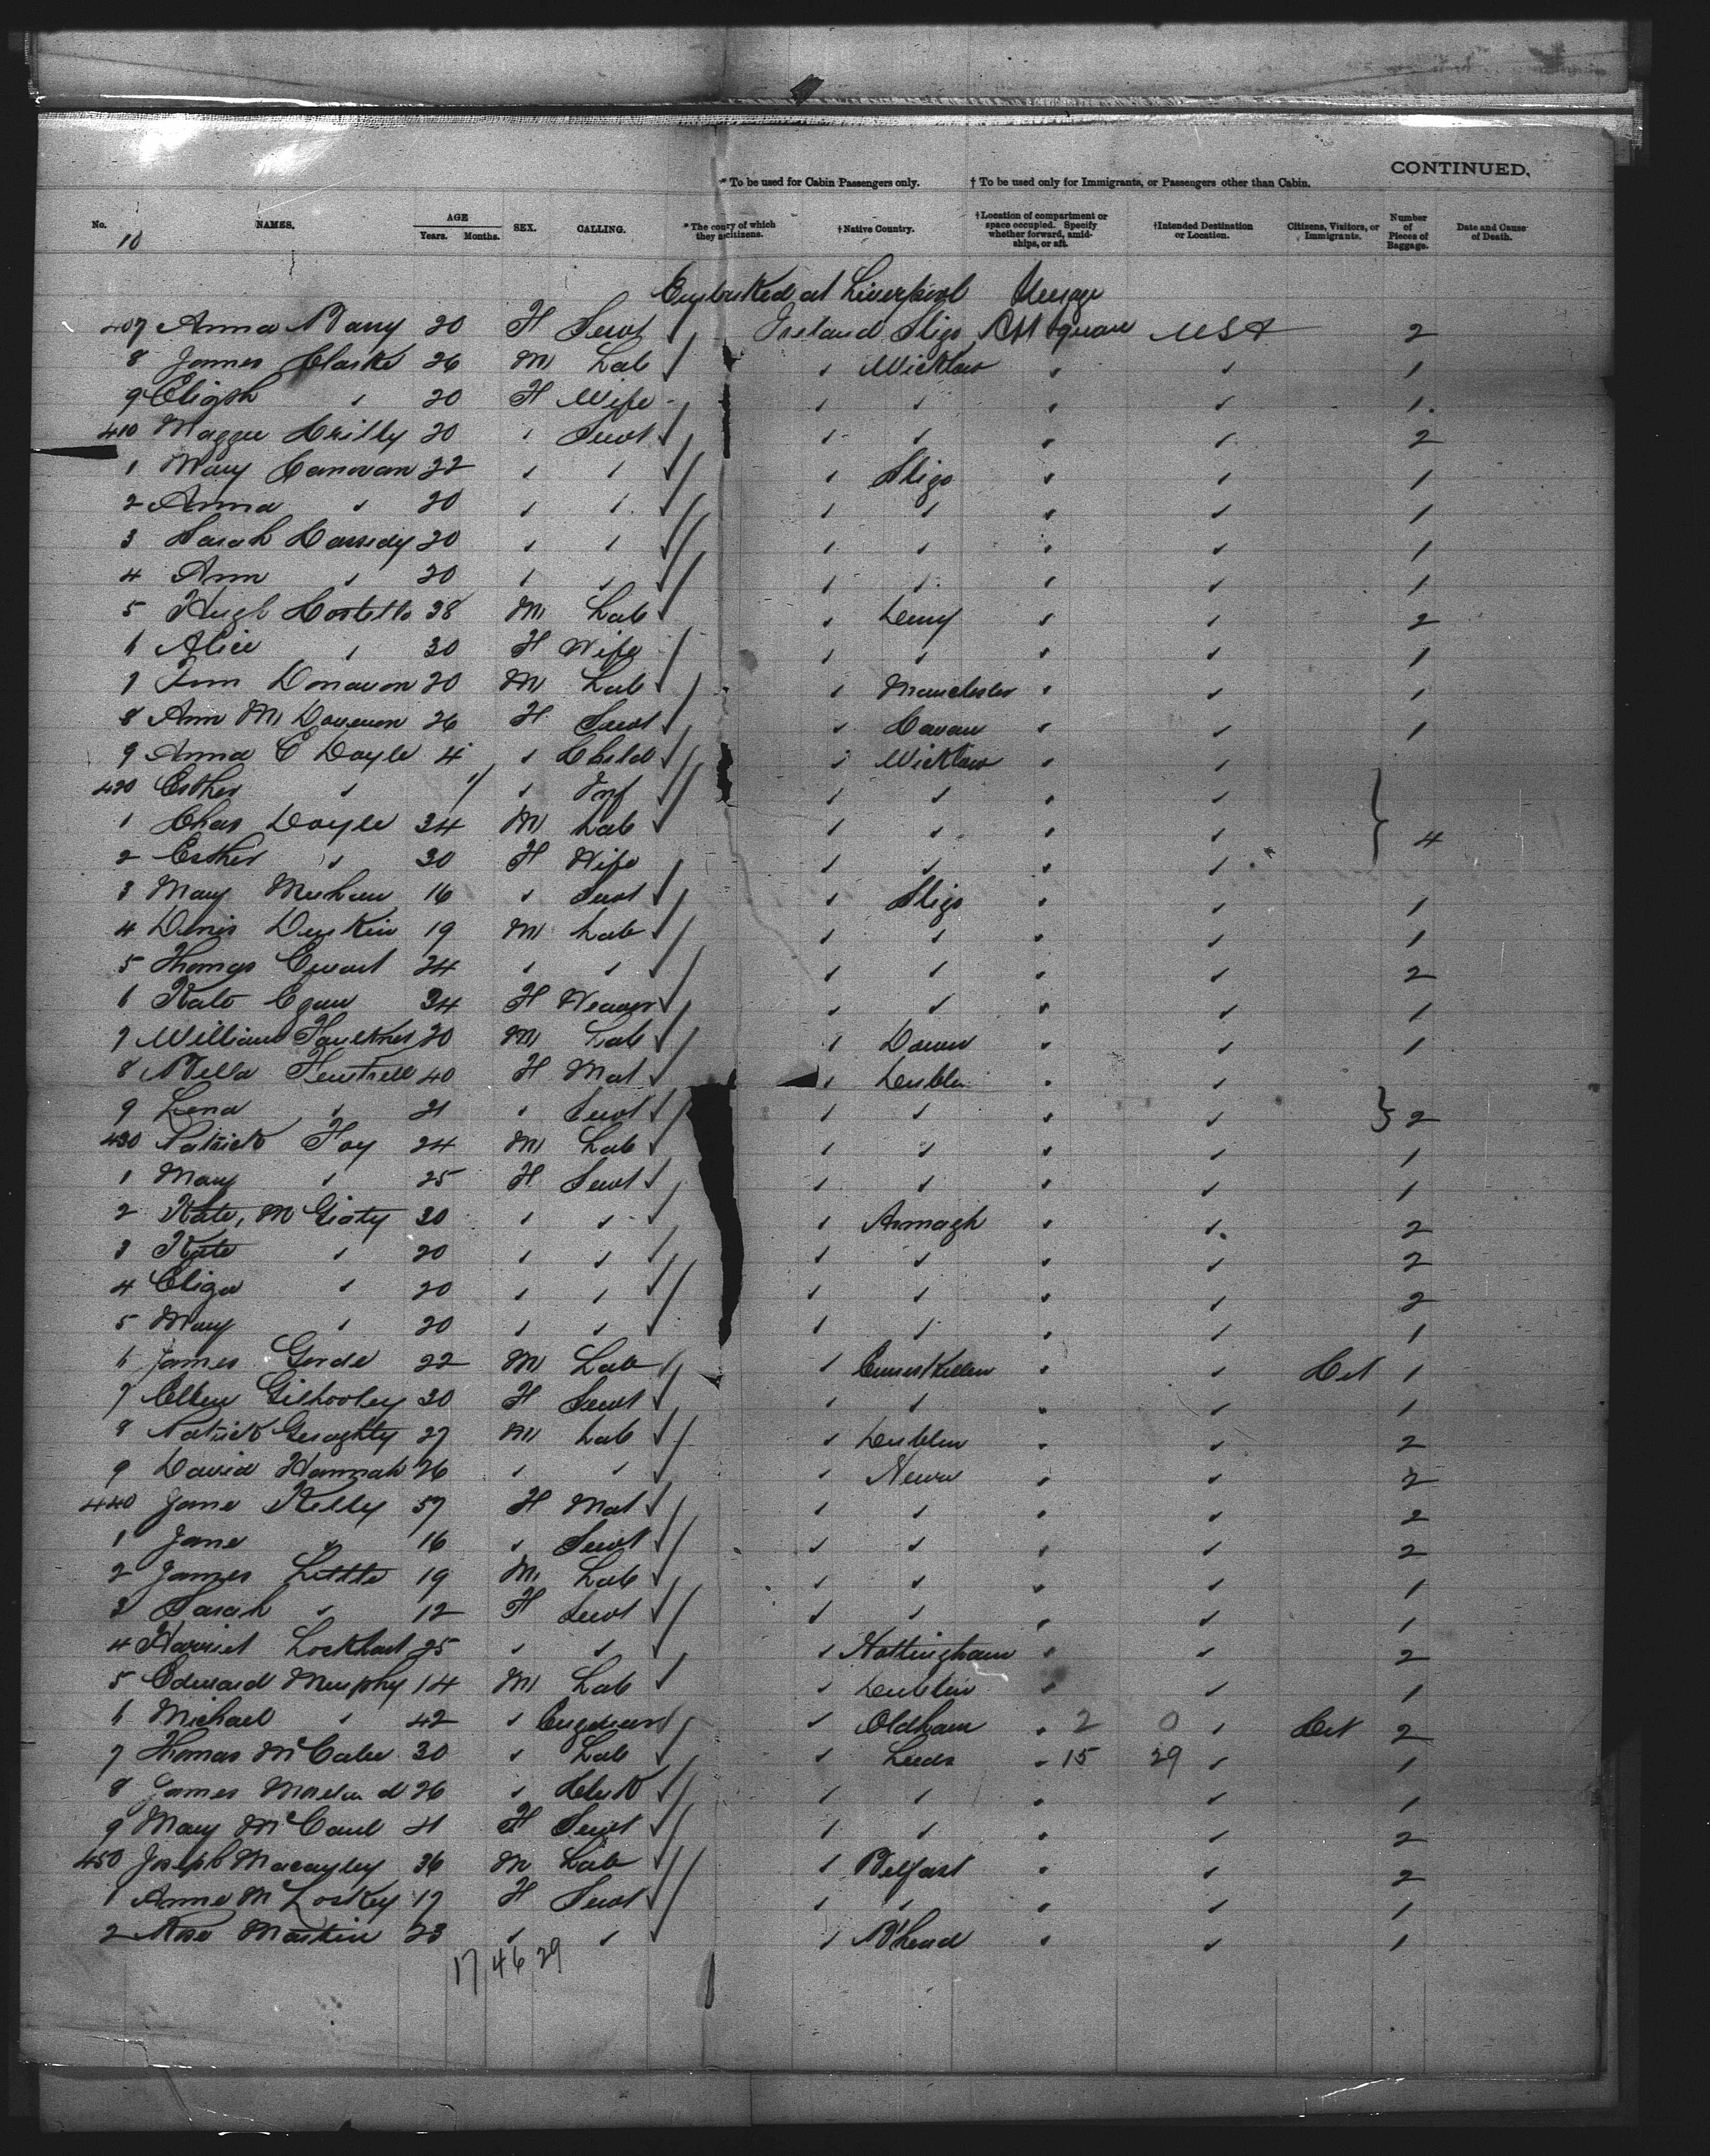 CONTINUED.
* To be used for Cabin Passengers only. † To be used only for Immigrants, or Passengers other than Cabin.
No. NAMES. AGE Years. Months. SEX. CALLING. * The coutry of which they are citizens. † Native Country. † Location of compartment or space occupied. Specify whether forward, amidships, or aft. † Intended Destination or Location. Citizens, Visitors, or Immigrants. Number of Pieces of Baggage. Date and Cause of Death.
10
Embarked at Liverpool
407 Anna Barry 20 F Servt Ireland Sligo USA 2
8 James Clarke 26 M Lab " Wicklow " " 1
9 Eligh " 20 F Wife " " " " 1
410 Maggie Crilly 20 " Servt " " " " 2
1 Mary Canovan 22 " " " Sligo " " 1
2 Anna " 20 " " " " " " 1
3 Sarah Cassidy 20 " " " " " " 1
4 Ann " 20 " " " " " " 1
5 Hugh Costello 38 M Lab " Derry " " 2
6 Alice " 30 F Wife " " " " 1
7 Donovan 20 M Lab " Manchester " " 1
8 Ann M 26 F Servt " Cavan " " 1
9 Anna E Doyle 4 " Child " Wicklow " "
420 Esther " 11 " Inf " " " "
1 Chas Doyle 34 M Lab " " " " 4
2 Esther " 30 F Wife " " " "
3 Mary Meehan 16 " Servt " Sligo " " 1
4 Denis Durkin 19 M Lab " " " " 1
5 Thomas Ewart 24 " " " " " " 2
6 Kate Egan 34 F Weaver " " " " 1
7 William Faulkner 20 M Lab " Down " " 1
8 Bella 40 F Mat " Dublin " "
9 Lena " 21 " Servt " " " " 2
430 Patrick Foy 24 M Lab " " " " 1
1 Mary " 25 F Servt " " " " 1
2 Kate McGinty 30 " " " Armagh " " 2
3 Kate " 20 " " " " " " 2
4 Eliza " 20 " " " " " " 2
5 Mary " 20 " " " " " " 1
6 James 22 M Lab " Enniskillen " " Cit 1
7 Ellen Gilhooley 30 F Servt " " " " 1
8 Patrick Geraghty 27 M Lab " Dublin " " 2
9 David Hannah 26 " " " " " 2
440 Jane Kelly 57 F Mat " " " " 2
1 Jane " 16 " Servt " " " " 2
2 James Little 19 M Lab " " " " 1
3 Sarah " 12 F Servt " " " " 1
4 Harriet Lockhart 25 " " " Nottingham " " 2
5 Edward Murphy 14 M Lab " Dublin " " 1
6 Michael " 42 " Engineer " Oldham " 2 0 " Cit 2
7 Thomas McCabe 30 " Lab " Leeds " 15 29 " 1
8 James 26 " Clerk " " " " 1
9 Mary McCaul 21 F Servt " " " " 2
450 Joseph Macauley 36 M Lab " Belfast " " 2
1 Anne McLoskey 17 F Servt " " " " 1
2 Rose Martin 23 " " " B'head " " 1
17 46 29